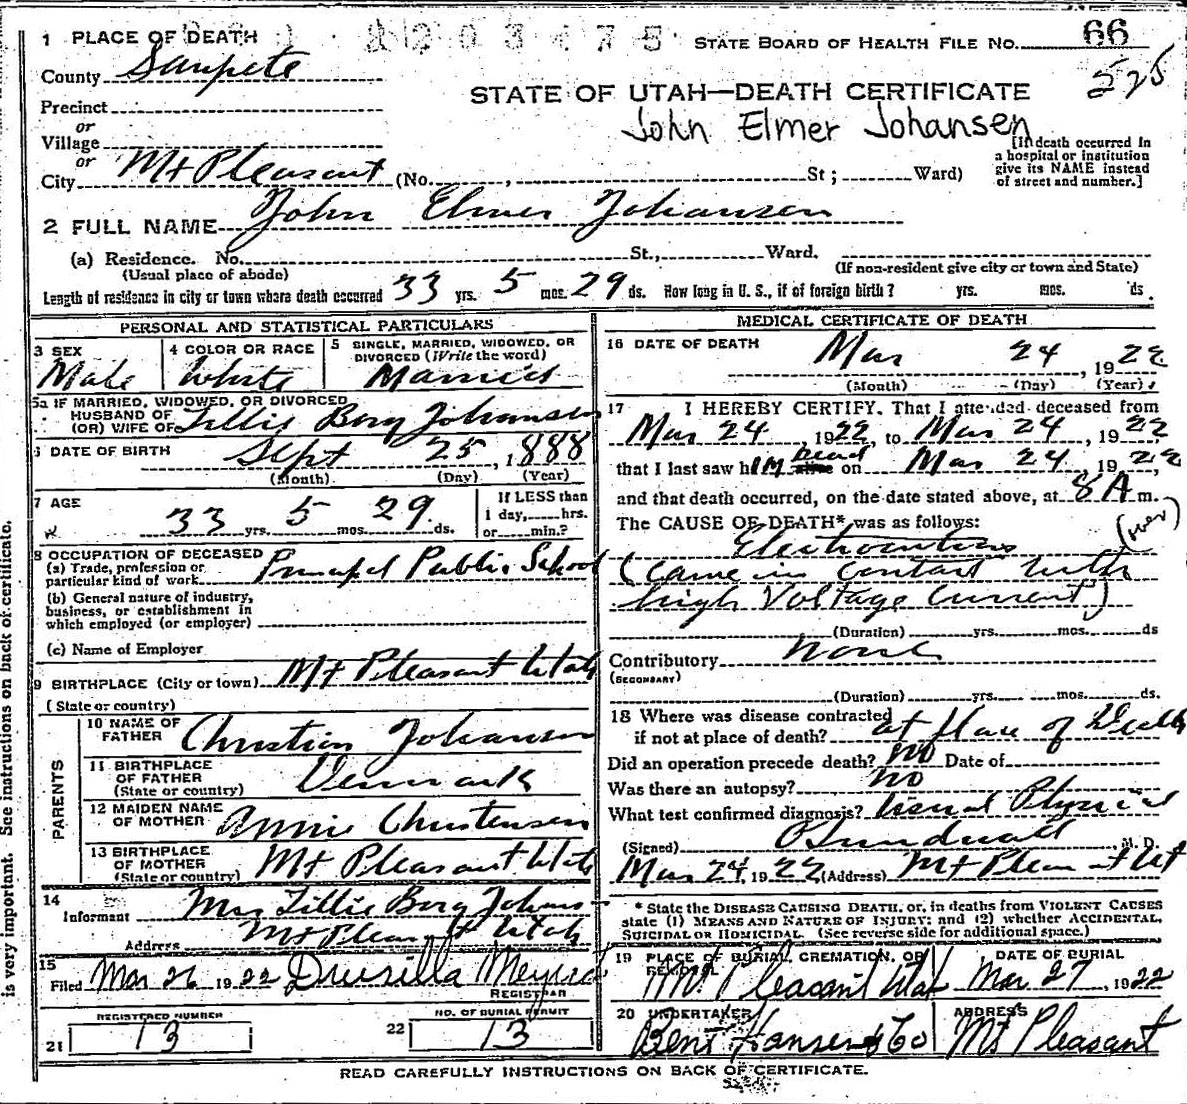 1 PLACE OF DEATH
1203475
STATE BOARD OF HEALTH FILE NO. 66
County Sanpete
525
Precinct
STATE OF UTAH—DEATH CERTIFICATE
or
Village
John Elmer Johansen
or
City Mt Pleasant (No. , St ; Ward)
[If death occurred in
a hospital or institution
give its NAME instead
of street and number.]
2 FULL NAME John Elmer Johansen
(a) Residence. No. St., Ward.
(Usual place of abode)
(If non-resident give city or town and State)
Length of residence in city or town where death occurred 33 yrs. 5 mos. 29 ds. How long in U. S., if of foreign birth? yrs. mos. ds.
PERSONAL AND STATISTICAL PARTICULARS
3 SEX
Male
4 COLOR OR RACE
White
5 SINGLE, MARRIED, WIDOWED, OR
DIVORCED (Write the word)
Married
5a IF MARRIED, WIDOWED, OR DIVORCED
HUSBAND OF
(OR) WIFE OF Lillie Borg Johansen
6 DATE OF BIRTH Sept 25, 1888
(Month) (Day) (Year)
7 AGE
33 yrs. 5 mos. 29 ds.
If LESS than
1 day, hrs.
or min.?
8 OCCUPATION OF DECEASED
(a) Trade, profession or
particular kind of work Principal Public School
(b) General nature of industry,
business, or establishment in
which employed (or employer)
(c) Name of Employer
9 BIRTHPLACE (City or town) Mt Pleasant Utah
(State or country)
PARENTS
10 NAME OF
FATHER Christian Johansen
11 BIRTHPLACE
OF FATHER
(State or country) Denmark
12 MAIDEN NAME
OF MOTHER Annie Christensen
13 BIRTHPLACE
OF MOTHER
(State or country) Mt Pleasant Utah
14
Informant Mrs Lillie Borg Johans
Address Mt Pleasant Utah
15
Filed Mar 26 1922 Drusilla
REGISTRAR
REGISTERED NUMBER
21 13
NO. OF BURIAL PERMIT
22 13
MEDICAL CERTIFICATE OF DEATH
16 DATE OF DEATH Mar 24, 1922
(Month) (Day) (Year)
17 I HEREBY CERTIFY, That I attended deceased from
Mar 24, 1922, to Mar 24, 1922
that I last saw him alive dead on Mar 24, 1922
and that death occurred, on the date stated above, at 8 A m.
The CAUSE OF DEATH* was as follows:
(over)
Electrocution
(came in contact with
high Voltage Current)
(Duration) yrs. mos. ds
Contributory None
(SECONDARY)
(Duration) yrs. mos. ds.
18 Where was disease contracted
if not at place of death? at place of Death
Did an operation precede death? no Date of
Was there an autopsy? no
What test confirmed diagnosis? Usual Physical
(Signed) M. D.
Mar 24, 1922 (Address) Mt Pleasant Ut
* State the DISEASE CAUSING DEATH, or, in deaths from VIOLENT CAUSES
state (1) MEANS AND NATURE OF INJURY; and (2) whether ACCIDENTAL,
SUICIDAL OR HOMICIDAL. (See reverse side for additional space.)
19 PLACE OF BURIAL, CREMATION, OR
REMOVAL
Mt Pleasant Utah
DATE OF BURIAL
Mar 27, 1922
20 UNDERTAKER
Bent Hansen & Co
ADDRESS
Mt Pleasant
READ CAREFULLY INSTRUCTIONS ON BACK OF CERTIFICATE.
is very important. See instructions on back of certificate.